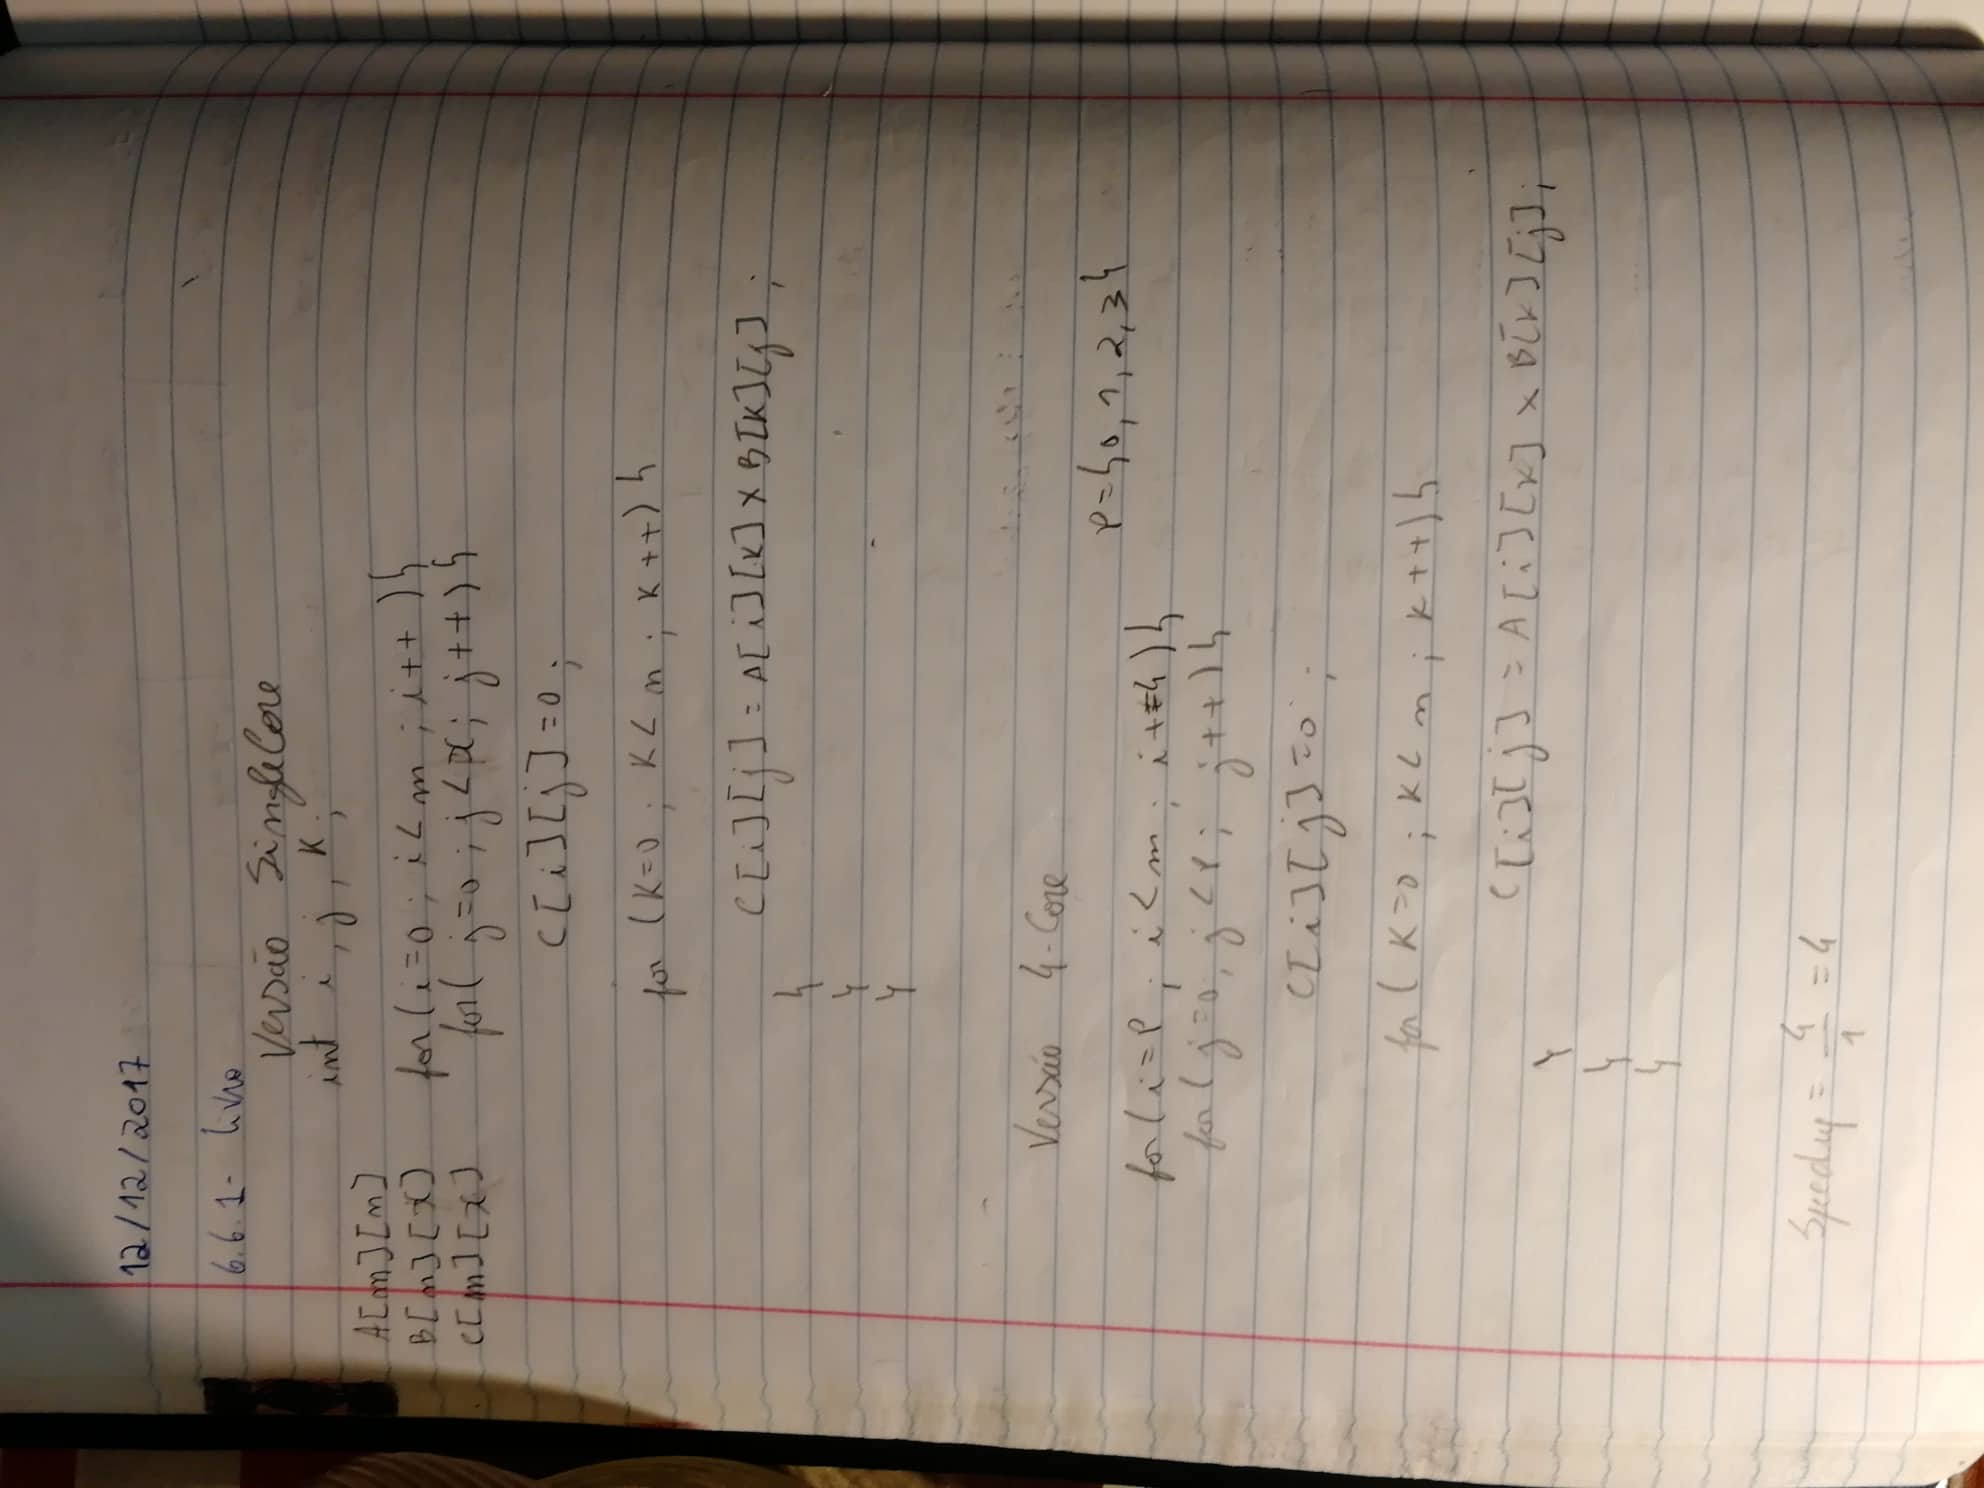 12/12/2017
6.6.1- Livro
Versão SingleCore
int i, j, K;
A[m][n] for(i=0; i<m; i++){
B[n][x] for(j=0; j<x; j++){
C[m][x]
C[i][j]=0;
for(K=0; K<n; K++){
C[i][j]=A[i][K]xB[K][j];
}
}
}
Versão 4-Core
P={0,1,2,3}
for(i=P; i<m; i+=4){
for(j=0; j<P; j++){
C[i][j]=0;
for(K=0; K<n; K++){
C[i][j]=A[i][K]xB[K][j];
}
}
}
Speedup = 4/1 = 4